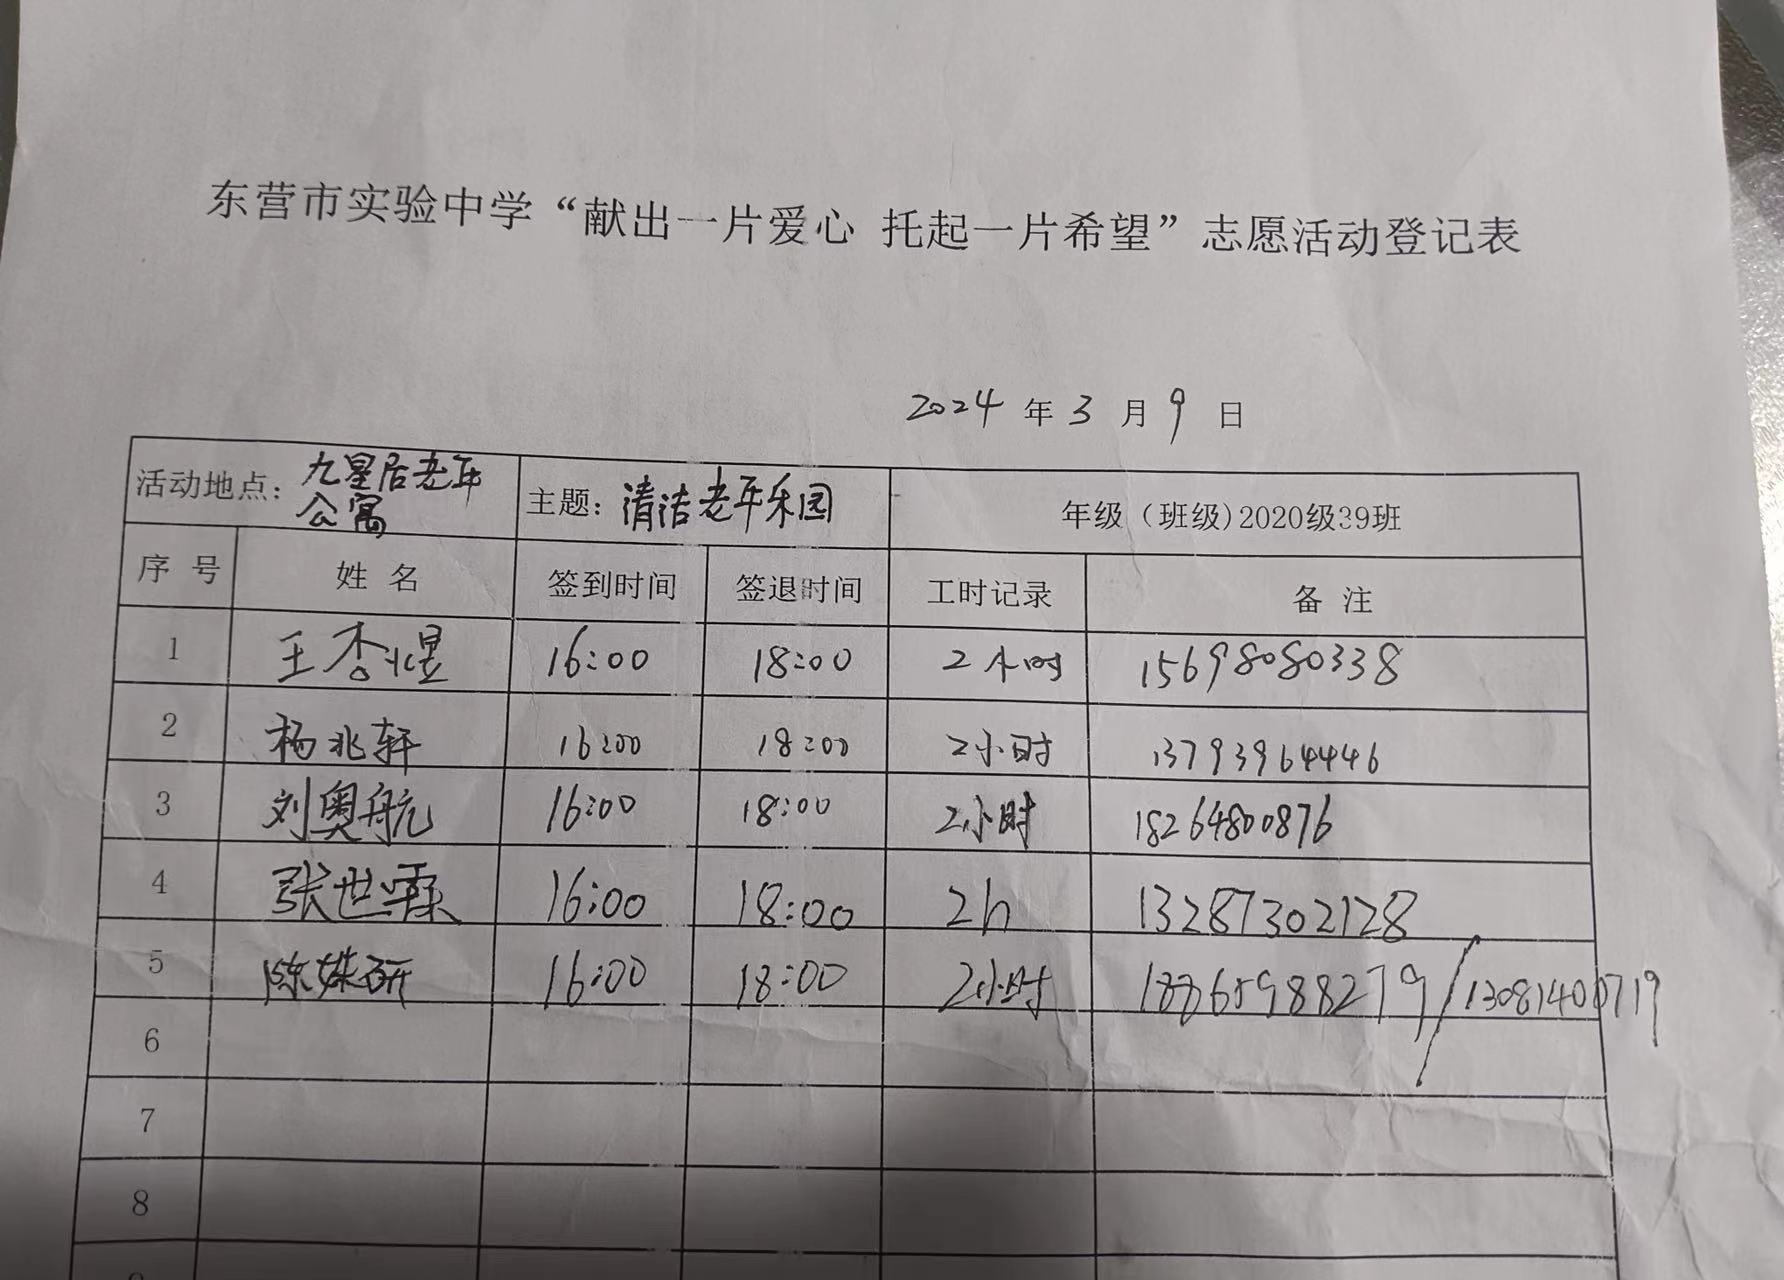 东营市实验中学“献出一片爱心 托起一片希望”志愿活动登记表
2024 年 3 月 9 日
活动地点：九星居老年公寓 主题：清洁老年乐园 年级（班级)2020级39班
序号 姓名 签到时间 签退时间 工时记录 备注
1 王杏煜 16:00 18:00 2小时 15698080338
2 杨兆轩 16:00 18:00 2小时 13793964446
3 刘奥航 16:00 18:00 2小时 18264800876
4 张世霖 16:00 18:00 2h 13287302128
5 陈姝研 16:00 18:00 2小时 18865988279/13081400719
6
7
8